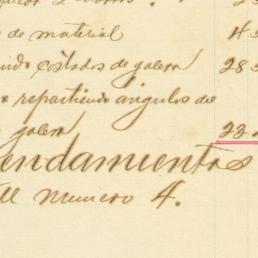 de material 45
costados de galera 285
repartiendo angulos de
galera 23
endamientos
numero 4.